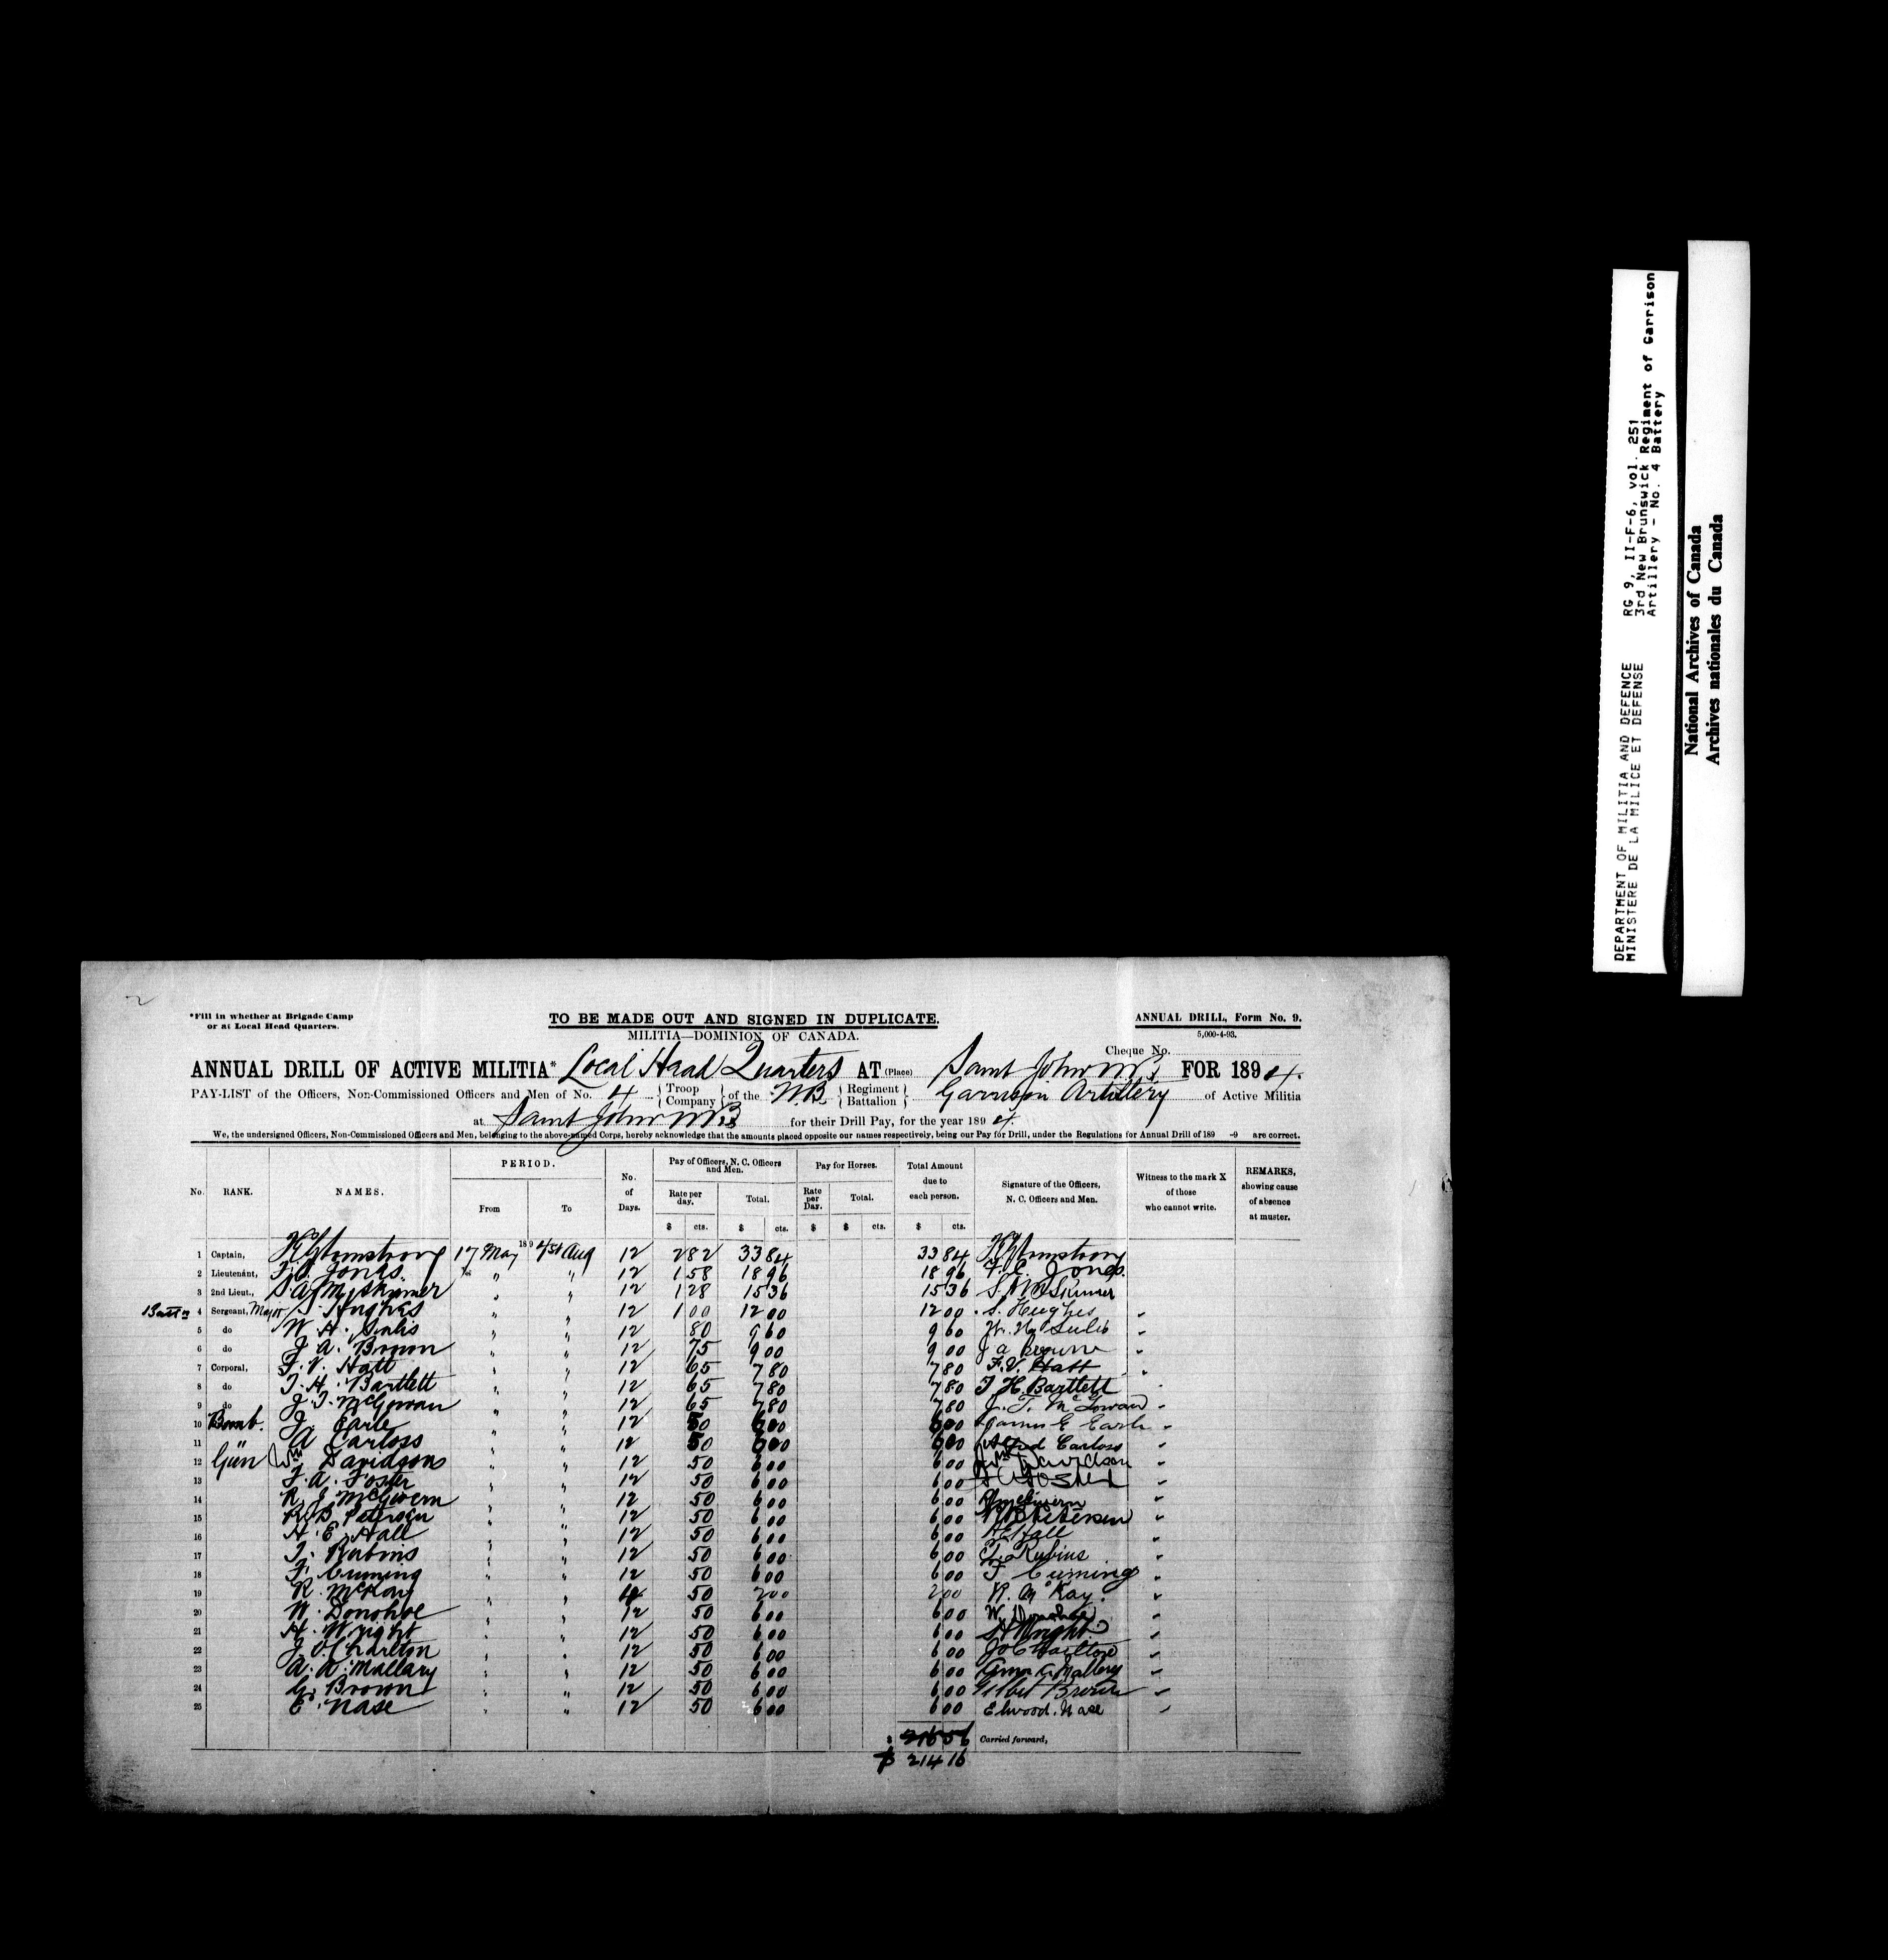 *Fill in whether at Brigade Camp
or at Local Head Quarters.
TO BE MADE OUT AND SIGNED IN DUPLICATE.
MILITIA—DOMINION OF CANADA.
ANNUAL DRILL, Form No. 9.
5,000-4-93.
Cheque No.
ANNUAL DRILL OF ACTIVE MILITIA* Local Head Quarters AT (Place) Saint John NB FOR 1894.
PAY-LIST of the Officers, Non-Commissioned Officers and Men of No. 4 { Troop Company } of the N.B. { Regiment Battalion } Garrison Artillery of Active Militia
at Saint John NB for their Drill Pay, for the year 1894.
We, the undersigned Officers, Non-Commissioned Officers and Men, belonging to the above-named Corps, hereby acknowledge that the amounts placed opposite our names respectively, being our Pay for Drill, under the Regulations for Annual Drill of 189 -9 are correct.
No. RANK. NAMES. PERIOD. From To No. of Days. Pay of Officers, N. C. Officers and Men. Rate per day. Total. Pay for Horses. Rate per Day. Total. Total Amount due to each person. Signature of the Officers, N. C. Officers and Men. Witness to the mark X of those who cannot write. REMARKS, showing cause of absence at muster.
$ cts. $ cts. $ $ cts. $ cts.
1 Captain, Armstrong 17 May 1894 1st Aug 12 2 82 33 84 33 84 Armstrong
2 Lieutenant, F. C. Jones " " 12 1 58 18 96 18 96 F. C. Jones
3 2nd Lieut., S. A. M. Skinner " " 12 1 28 15 36 15 36 S. A. M. Skinner
Batt'n 4 Sergeant, Major S. Hughes " " 12 1 00 12 00 12 00 S. Hughes "
5 do W. H. Sulis " " 12 80 9 60 9 60 W. H. Sulis "
6 do J. A. Brown " " 12 75 9 00 9 00 J A Brown "
7 Corporal, F. V. Hatt " " 12 65 7 80 7 80 F. V. Hatt "
8 do T. H. Bartlett " " 12 65 7 80 7 80 T H. Bartlett
9 do J. T. McGowan " " 12 65 7 80 7 80 J. T. McGowan "
10 Bomb. J. Earle " " 12 50 6 00 6 00 James E Earle "
11 A Carloss " " 12 50 6 00 6 00 Carloss "
12 Gun Wm Davidson " " 12 50 6 00 6 00 Wm Davidson "
13 F. A. Foster " " 12 50 6 00 6 00 F A Foster "
14 R. J. McGivern " " 12 50 6 00 6 00 McGivern "
15 R. B. Peterson " " 12 50 6 00 6 00 R B Petersen "
16 H. E. Hall " " 12 50 6 00 6 00 H E Hall "
17 T. Rubins " " 12 50 6 00 6 00 T. Rubins "
18 F. Cuming " " 12 50 6 00 6 00 F Cuming "
19 R. McKay " " 4 50 2 00 2 00 R. McKay "
20 W. Donohoe " " 12 50 6 00 6 00 W. Donohoe "
21 H. Wright " " 12 50 6 00 6 00 H Wright "
22 J. O. Charlton " " 12 50 6 00 6 00 J O Charlton "
23 A. A. Mallary " " 12 50 6 00 6 00 A. Mallery "
24 G. Brown " " 12 50 6 00 6 00 Gilbert Brown "
25 E. Nase " " 12 50 6 00 6 00 Elwood. Nase "
$ Carried forward,
$ 214 16
DEPARTMENT OF MILITIA AND DEFENCE RG 9, II-F-6, vol. 251
MINISTERE DE LA MILICE ET DEFENSE 3rd New Brunswick Regiment of Garrison
Artillery - No. 4 Battery
National Archives of Canada
Archives nationales du Canada